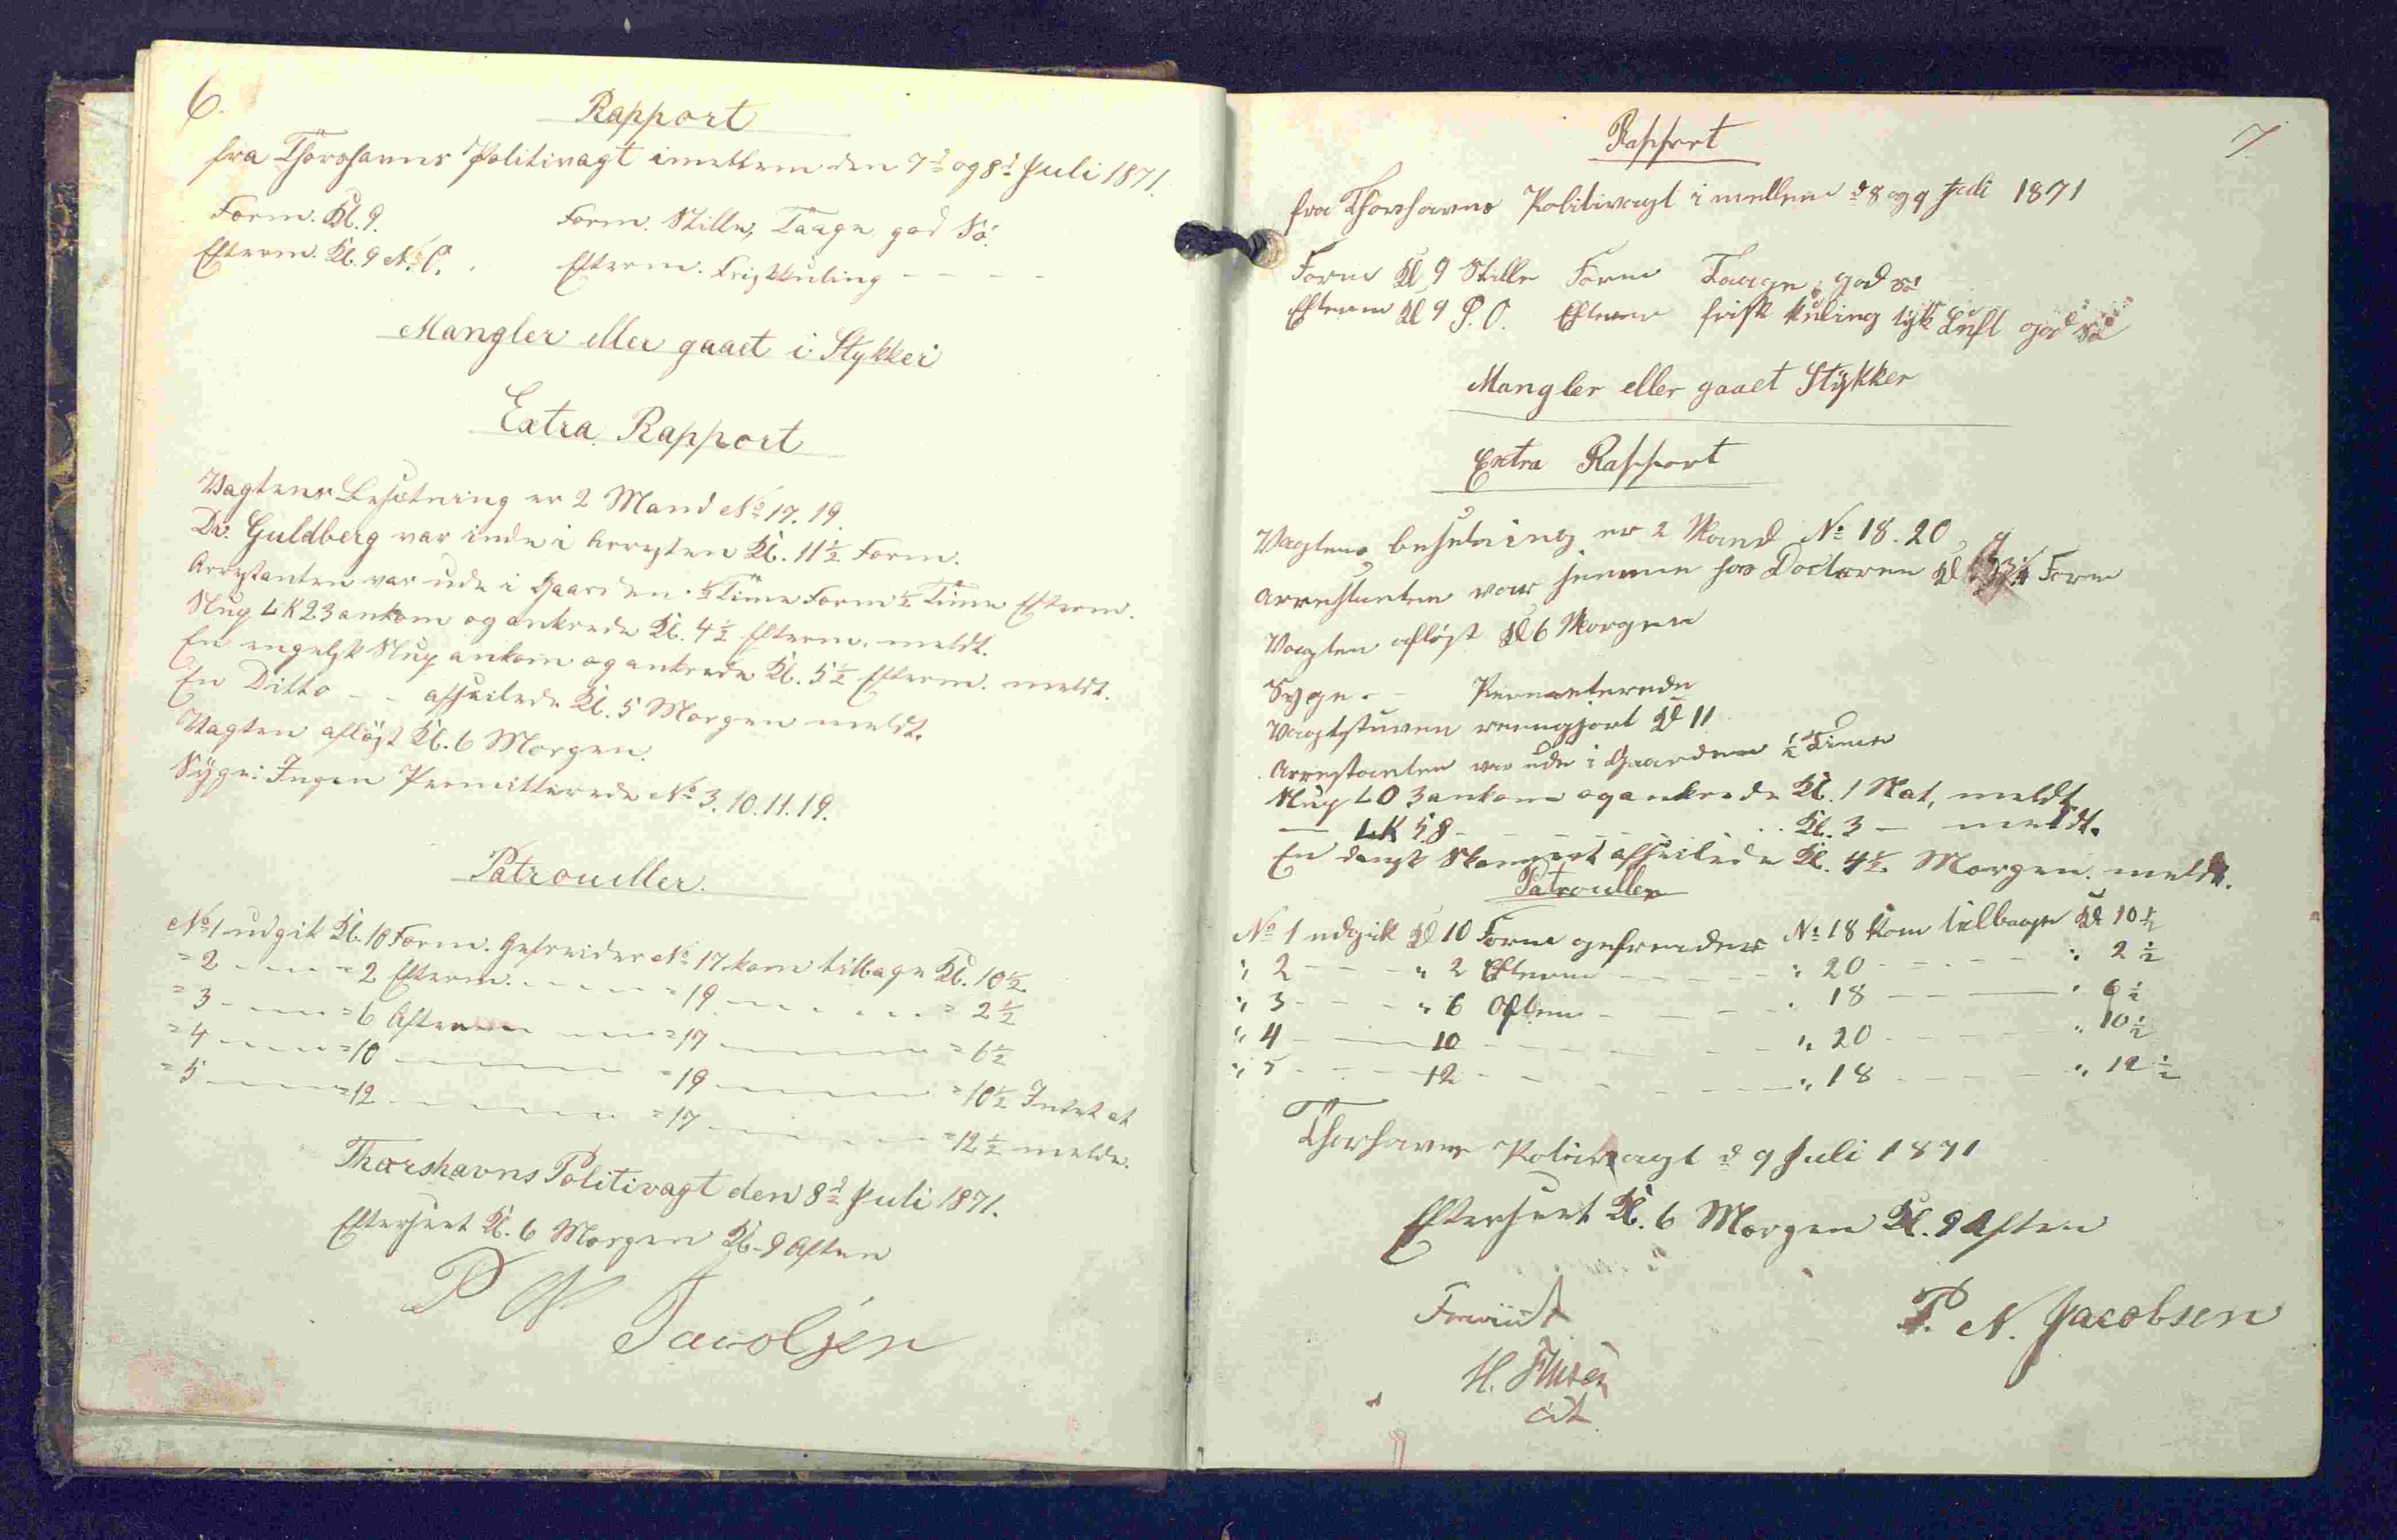 6.
Rapport
fra Thorshavns Politivagt imellem den 7d og 8d Juli 1871.
Form. Kl. 9. Form. Stille, Taage god Sö.
Efterm. Kl. 9 N. O. Efterm. Friskkuling - - - -
Mangler eller gaaet i Stykker
Extra Rapport
Vagtens Besætning er 2 Mand No 17. 19.
Dr. Guldberg var inde i Arresten Kl. 11½ Form.
Arrestanten var ude i Gaarden ½ Time Form ½ Time Efterm.
Slup LK 23 ankom og ankrede Kl. 4½ Efterm. meldt.
En engelsk Slup ankom og ankrede Kl. 5½ Efterm. meldt.
En Ditto - - afseilede Kl. 5 Morgen meldt.
Vagten aflöst Kl. 6 Morgen.
Syge: Ingen Permitterede No 3. 10. 11. 19.
Patrouiller.
No 1 udgik Kl. 10 Form. Gefreider No 17 kom tilbage Kl. 10½
= 2 - - - = 2 Efterm. - - - - = 19 - - - - - = 2½
= 3 - - - = 6 Aften - - - = 17 - - - - - = 6½
= 4 - - - = 10 - - - - - = 19 - - - - - = 10½ Intet at
= 5 - - - = 12 - - - - - = 17 - - - - - = 12½ melde.
Thorshavns Politivagt den 8d Juli 1871.
Efterseet Kl. 6 Morgen Kl. 9 Aften
P N Jacobsen
7.
Rapport
fra Thorshavns Politivagt i mellem d 8 og 9 Juli 1871
Form Kl 9 Stille Form Taage, god sö
Efterm Kl 9 S. O. Efterm frisk kuling tyk Luft god sö
Mangler eller gaaet Stykker
Extra Rapport
Vagtens besetning er 2 Mand No 18. 20
Arrestanten var hemme hos Doctoren Kl Form
Vagten aflöst Kl 6 Morgen
Syge - - Permeterede
Vagtstuven reengjort Kl 11
Arrestanten var ude i Gaarden ½ Time
Slup LO 3 ankom og ankrede Kl. 1 Nat, meldt
— LK 58 - - - - - Kl. 3 — meldt.
En dansk Skonnert afseilede Kl. 4½ Morgen. meldt.
Patrouller
No 1 udgik Kl 10 Form gefreider No 18 kom tilbage Kl 10½
" 2 - - - " 2 Efterm - - - " 20 - - - - " 2½
" 3 - - - " 6 Aften - - - " 18 - - - " 6½
" 4 - - - 10 - - - - - " 20 - - - - " 10½
" 5 - - - 12 - - - - - " 18 - - - - " 12½
Thorshavns Politivagt d 9 Juli 1871
Efterseet Kl. 6 Morgen Kl. 9 Aften
P. N. Jacobsen
H.